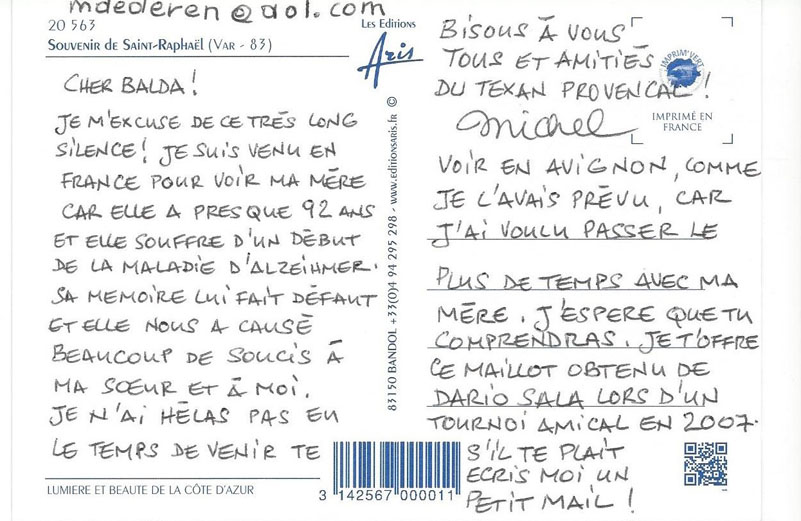 mdederen@aol.com
20 563
Souvenir de Saint-Raphaël (Var - 83)
Les Editions
Aris
CHER BALDA !
JE M'EXCUSE DE CE TRÉS LONG
SILENCE ! JE SUIS VENU EN
FRANCE POUR VOIR MA MÈRE
CAR ELLE A PRESQUE 92 ANS
ET ELLE SOUFFRE D'UN DÉBUT
DE LA MALADIE D'ALZEIHMER.
SA MEMOIRE LUI FAIT DÉFAUT
ET ELLE NOUS A CAUSÉ
BEAUCOUP DE SOUCIS À
MA SŒUR ET À MOI.
JE N'AI HÉLAS PAS EU
LE TEMPS DE VENIR TE
LUMIERE ET BEAUTE DE LA CÔTE D'AZUR
83150 BANDOL +33(0)4 94 295 298 - www.editionsaris.fr ©
3 142567 000011
VOIR EN AVIGNON, COMME
JE L'AVAIS PRÉVU, CAR
J'AI VOULU PASSER LE
PLUS DE TEMPS AVEC MA
MÈRE. J'ESPERE QUE TU
COMPRENDRAS. JE T'OFFRE
CE MAILLOT OBTENU DE
DARIO SALA LORS D'UN
TOURNOI AMICAL EN 2007.
S'IL TE PLAIT
ECRIS MOI UN
PETIT MAIL !
BISOUS À VOUS
TOUS ET AMITIÉS
DU TEXAN PROVENCAL !
Michel
IMPRIM'VERT
IMPRIMÉ EN
FRANCE